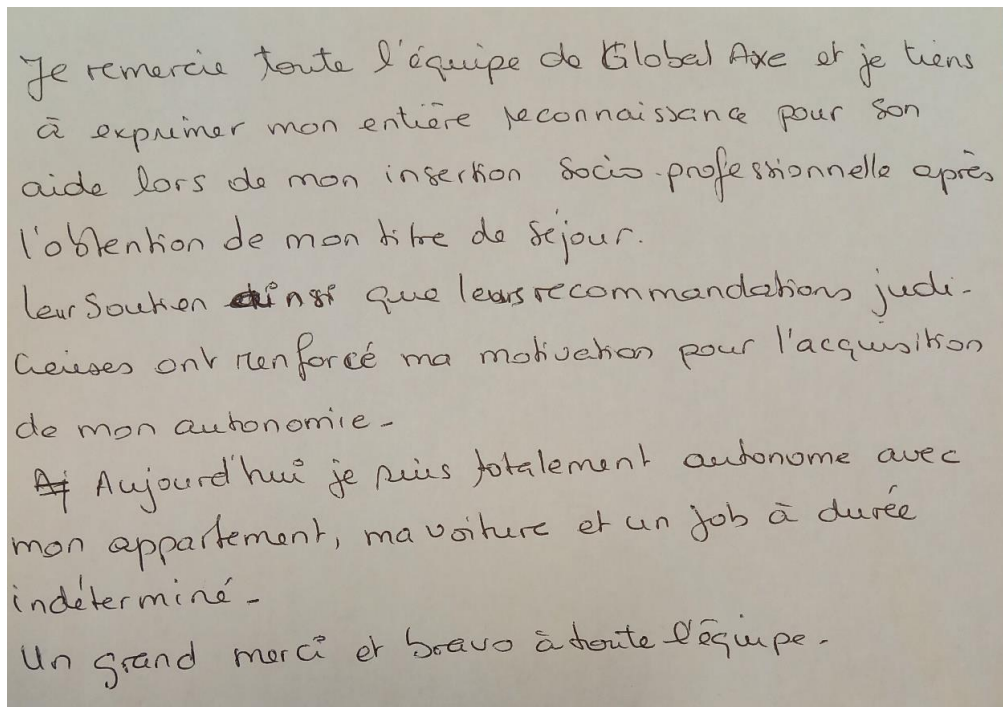 Je remercie toute l'équipe de Global Axe et je tiens
à exprimer mon entière reconnaissance pour son
aide lors de mon insertion socio-professionnelle après
l'obtention de mon titre de séjour.
leur soutien ainsi que leurs recommandations judi-
cieuses ont renforcé ma motivation pour l'acquisition
de mon autonomie-
Aujourd'hui je suis totalement autonome avec
mon appartement, ma voiture et un job à durée
indéterminé-
Un grand merci et bravo à toute l'équipe-